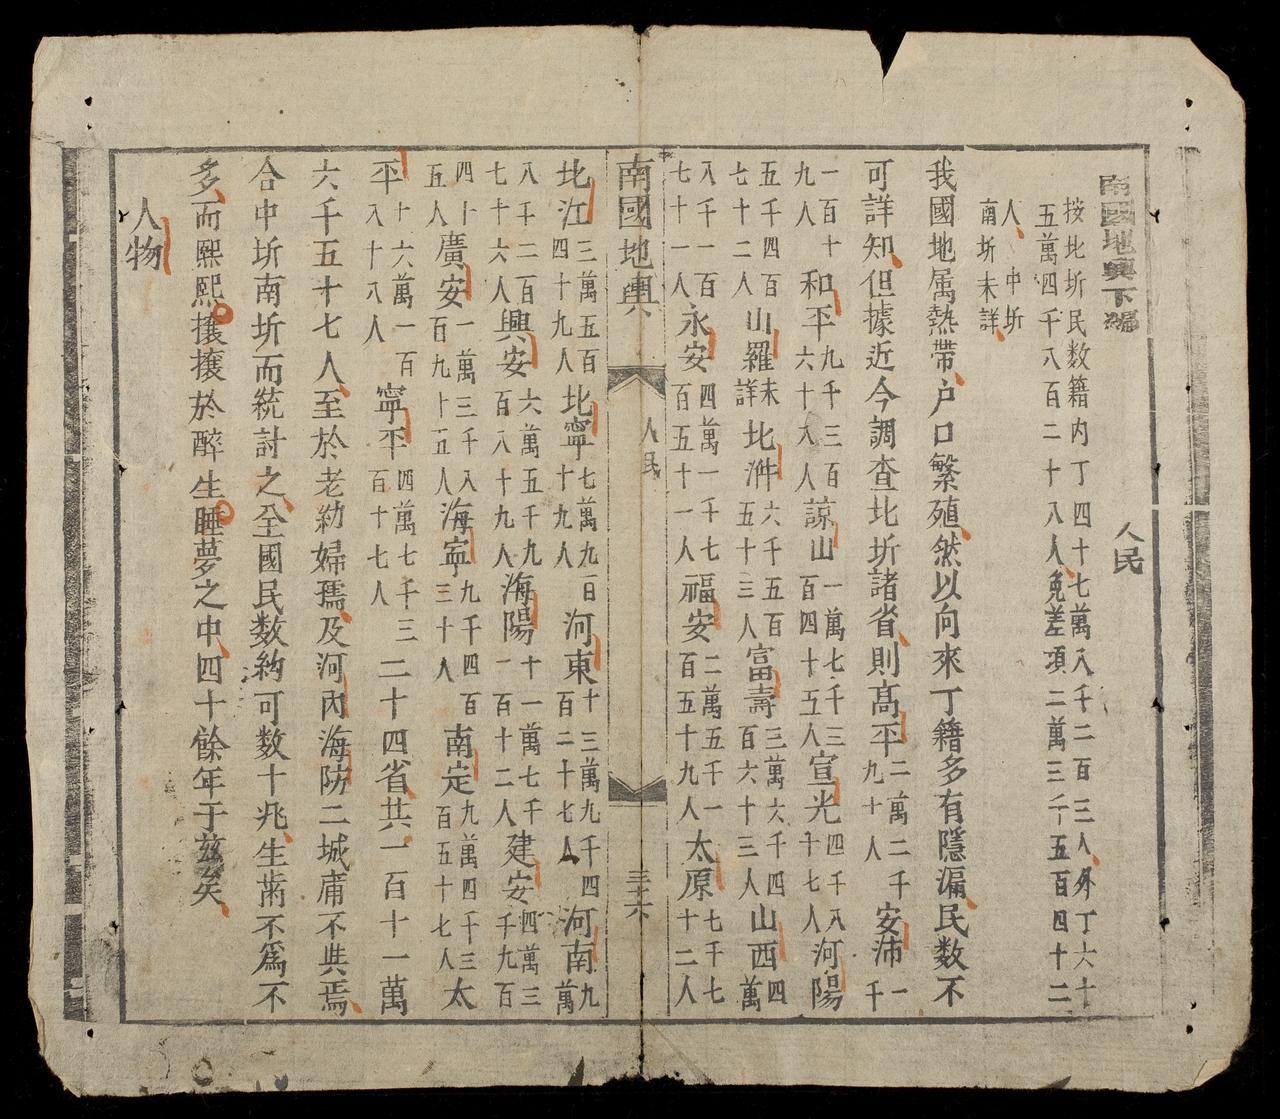 南國地輿下編 人民
按北圻民数籍内丁四十七萬八千二百三人外丁六十
五萬四千八百二十八人免差項二萬三千五百四十二
人中圻
南圻未詳
我國地属熱帶户口繁殖然以向來丁籍多有隱漏民数不
可詳知但據近今調查北圻諸省則高平二萬二千九十人安沛一千
一百十九人和平九千三百六十八人諒山一萬七千三百四十五人宣光四千八十七人河陽
五千四百七十二人山羅未詳北𣴓六千五百五十三人富壽三萬六千四百六十三人山西四萬
八千一百七十一人永安四萬一千七百五十一人福安二萬五千一百五十九人太原七千七十二人
南國地輿 人民 三十六
北江三萬五百四十九人北寧七萬九百十九人河東十三萬九千四百二十七人河南九萬
八千二百七十六人興安六萬五千九百八十九人海陽十一萬七千一百十二人建安四萬三千九百
四十五人廣安一萬三千八百九十五人海寧九千四百三十人南定九萬四千三百五十七人太
平十六萬一百八十八人寧平四萬七千三百十七人二十四省共一百十一萬
六千五十七人至於老幼婦孺及河内海防二城庸不與焉
合中圻南圻而統計之全國民数約可数十兆生齒不爲不
多而熙熙攘攘於醉生睡夢之中四十餘年于兹矣
人物